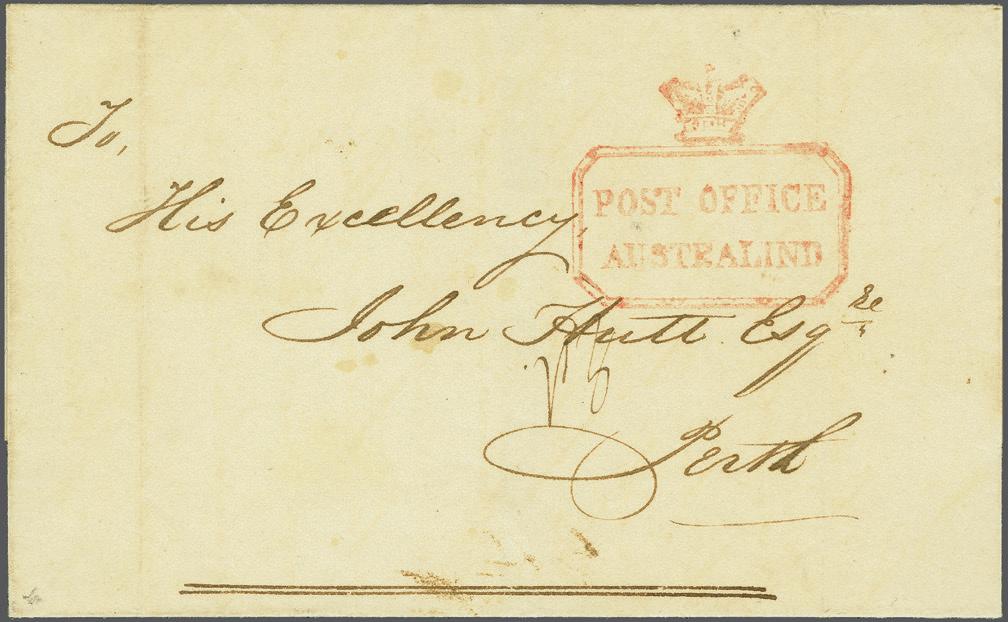 To,
POST OFFICE
AUSTRALIND
His Excellency,
John Hutt Esqre
Perth